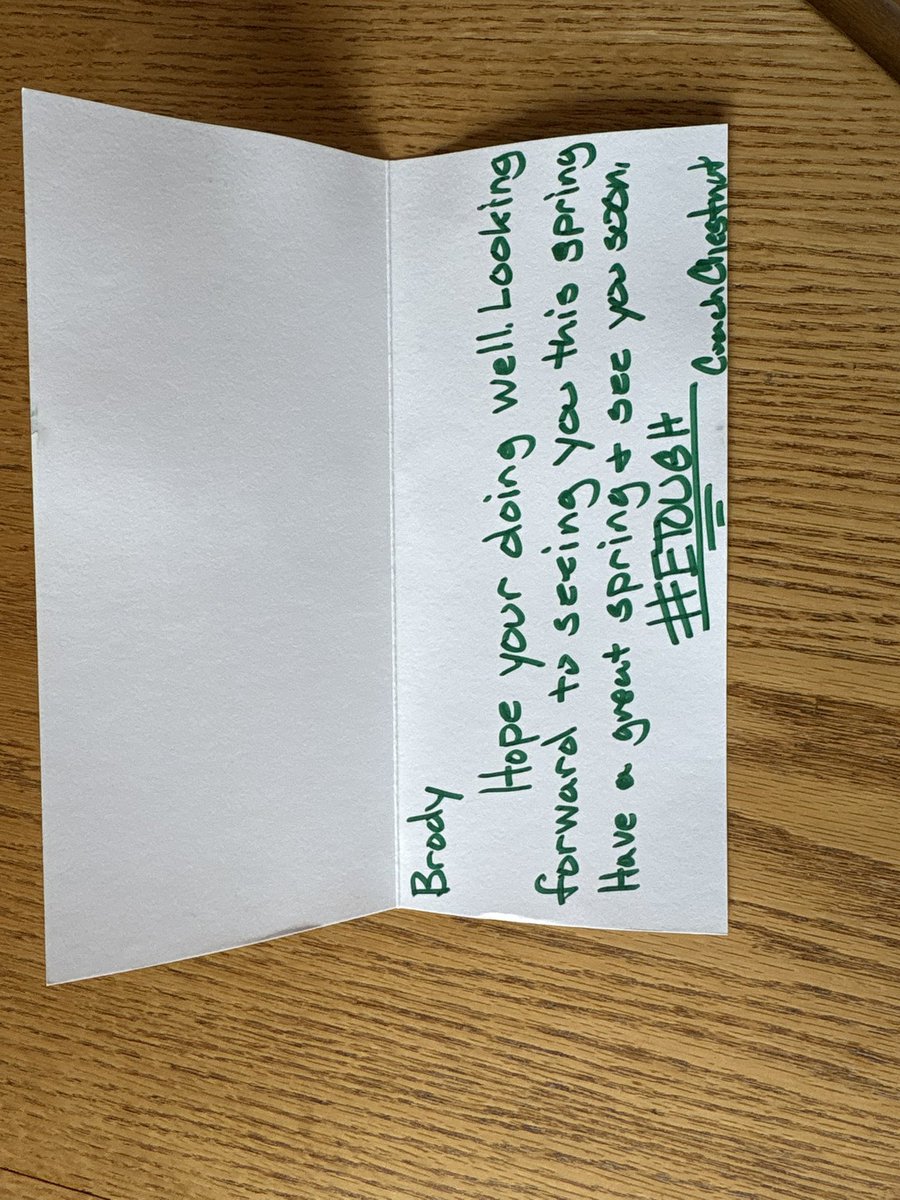 Brody
Hope your doing well. Looking
forward to seeing you this spring
Have a great spring + see you soon.
#ETOUGH
Coach Chestnut